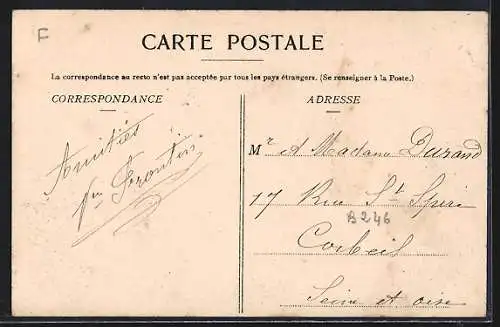 F
CARTE POSTALE
La correspondance au recto n'est pas acceptée par tous les pays étrangers. (Se renseigner à la Poste.)
CORRESPONDANCE
ADRESSE
Amitiés
Frontin
Mr et Madame Durand
17 Rue St Spire
B246
Corbeil
Seine et oise